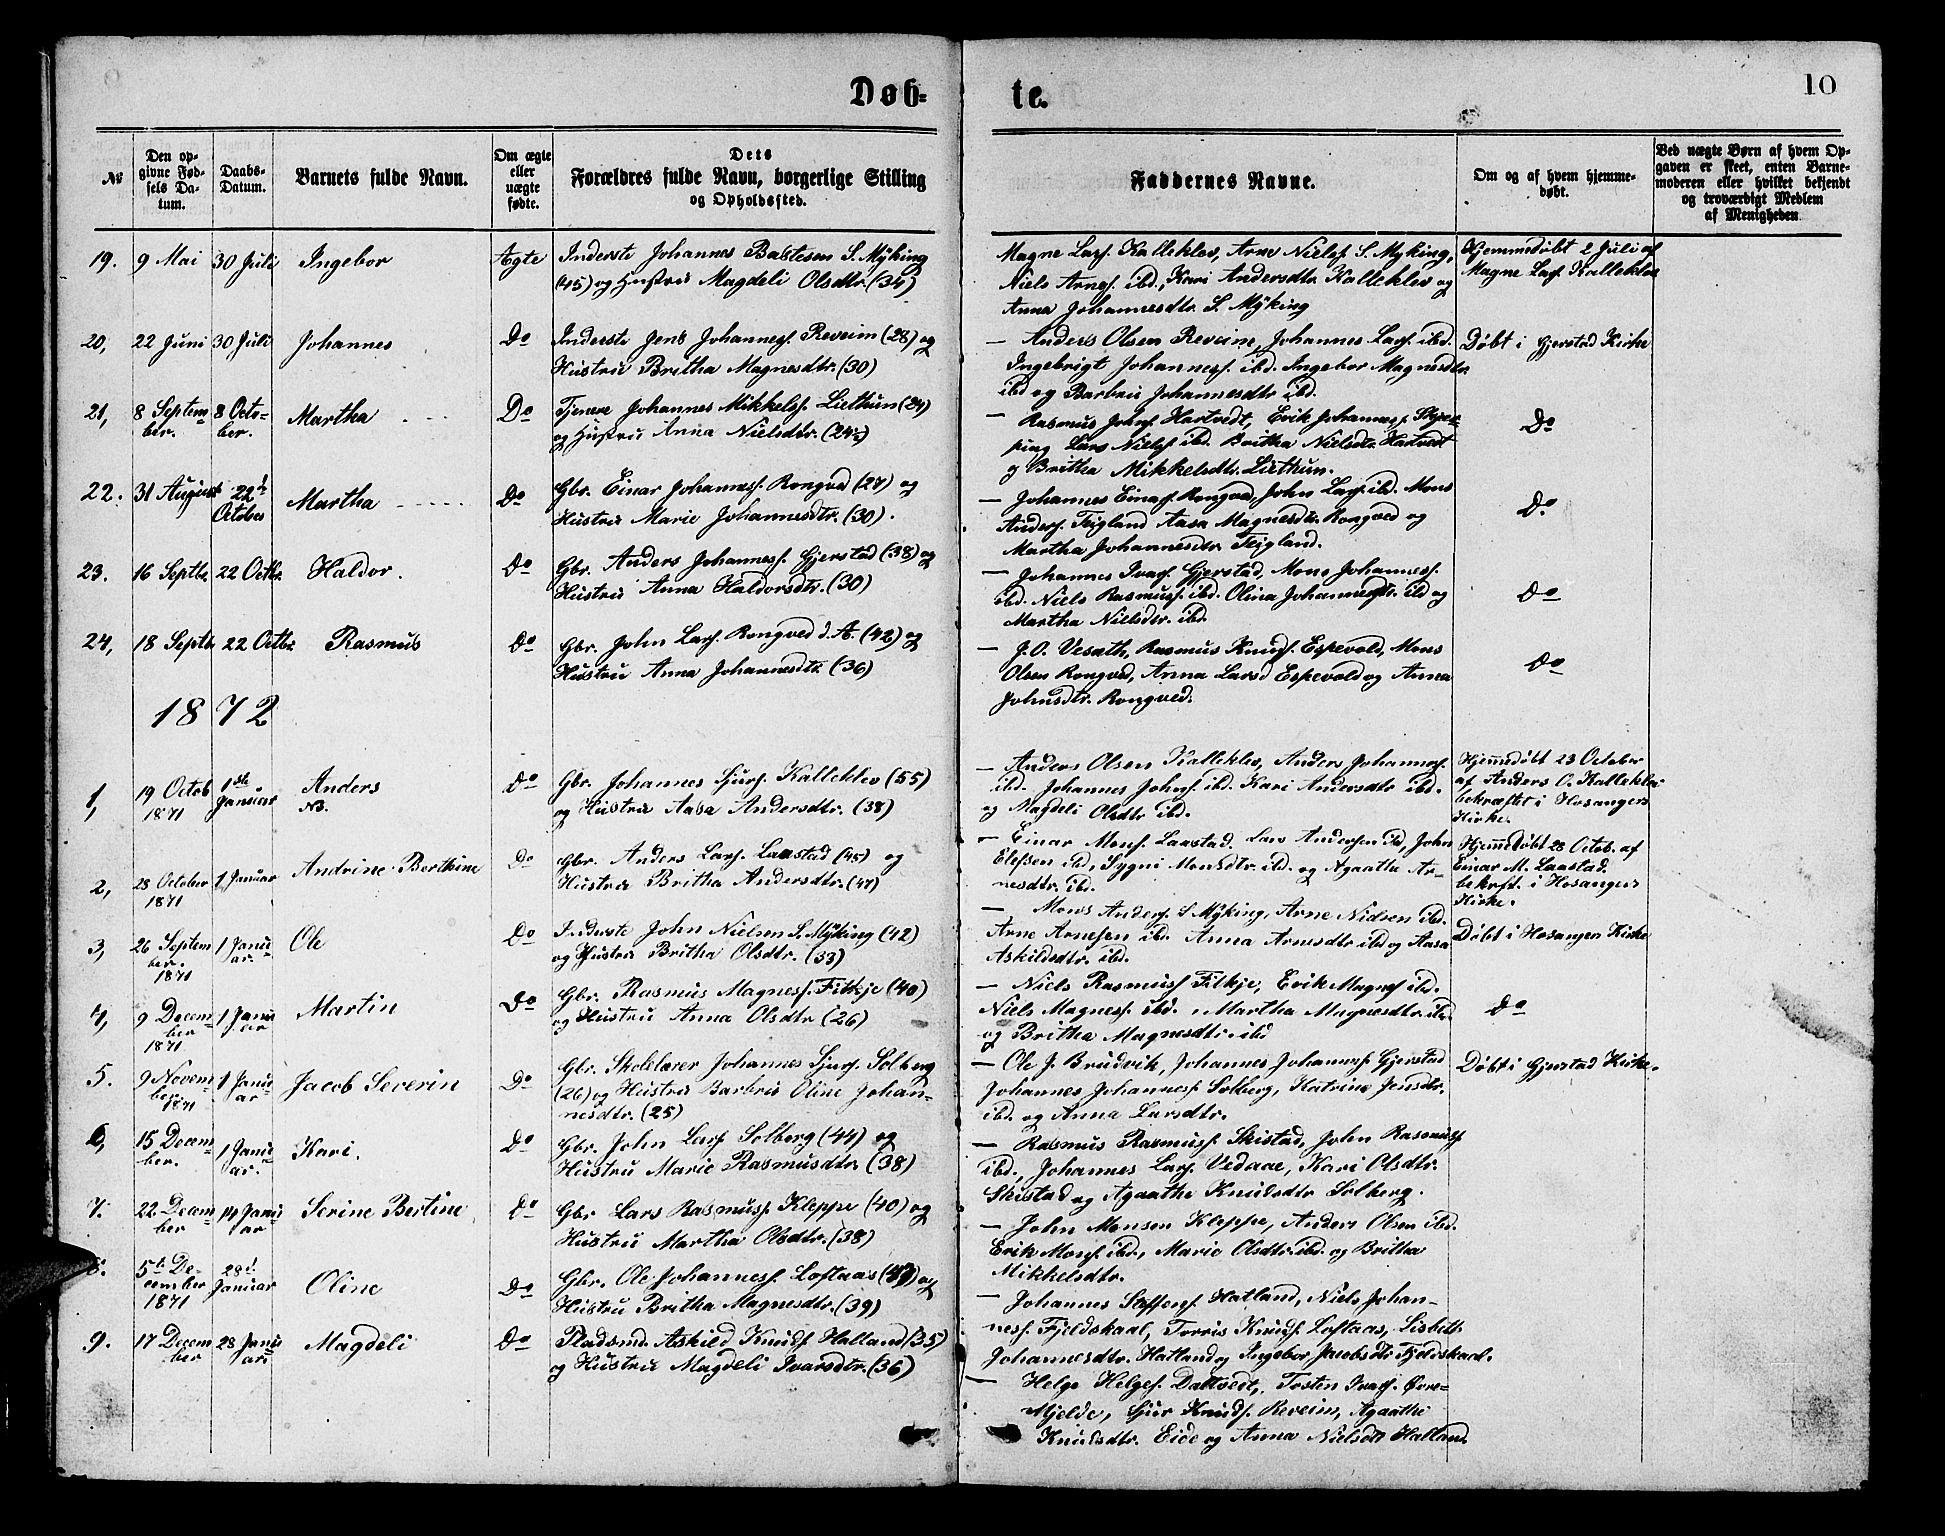 Døb-
te.
10
№
Den op-
givne Fød-
sels Da-
tum.
Daabs-
Datum.
Barnets fulde Navn.
Om ægte
eller
uægte
fødte.
Dets
Forældres fulde Navn, borgerlige Stilling
og Opholdssted.
Faddernes Navne.
Om og af hvem hjemme-
døbt.
Ved uægte Børn af hvem Op-
gaven er skeet, enten Barne-
moderen eller hvilket bekjendt
og troværdigt Medlem
af Menigheden
19. 9 Mai 30 Juli Ingebor Ægte Inderste Johannes Baltesen S. Myking
(45) og Hustru Magdeli Olsdtr. (34)
Magne Larss. Kalleklev, Arne Nielss. S. Myking,
Niels Arness. ibd., Kari Andersdtr. Kalleklev og
Anna Johannesdtr. S. Myking
Hjemmedøbt 2 Juli af
Magne Larss. Kalleklev
20, 22 Juni 30 Juli Johannes Do Inderste Jens Johanness. Reveim (28) og
Hustru Britha Magnesdtr. (30)
— Anders Olsen Reveim, Johannes Larss. ibd.
Ingebrigt Johanness. ibd. Ingebor Magnesdtr.
ibd og Barbru Johannesdtr ibd.
Døbt i Gjerstad Kirke
21, 8 Septem-
ber. 8 Octo-
ber. Martha Do Tjener Johannes Mikkelss. Liethun (24)
og Hustru Anna Nielsdtr. (24)
— Rasmus Johns. Hartvedt, Erik Johanness.
Lars Nielss. ibd. Britha Nielsdtr. Hartvedt
og Britha Mikkelsdtr. Liethun.
Do
22. 31 August 22d
October Martha Do Gbr. Einar Johanness. Rongved (27) og
Hustru Marie Johannesdtr. (30).
— Johannes Einarss. Rongved, John Larss. ibd. Mons
Anderss. Teigland Aasa Magnesdtr. Rongved og
Martha Johannesdtr. Teigland.
Do.
23. 16 Septbr. 22 Octbr. Haldor. Do Gbr. Anders Johanness. Gjerstad (38) og
Hustru Anna Haldorsdtr. (30)
— Johannes Ivars. Gjerstad, Mons Johanness.
ibd. Niels Rasmuss. ibd. Olina Johannesdtr. ibd og
Martha Nielsdtr. ibd.
Do
24, 18 Septb. 22 Octbr Rasmus Do Gbr. John Larss. Rongved d. A. (42) og
Hustru Anna Johannesdtr. (36)
— J. O. Vesath, Rasmus Knuds. Espevold, Mons
Olsen Rongved, Anna Larsd Espevold og Anna
Johnsdtr. Rongved.
Do
1872
1, 19 Octob
1871 1ste
Januar Anders
NB. Do Gbr. Johannes Sjurs. Kalleklev (55)
og Hustru Aasa Andersdtr. (38)
— Anders Olsen Kalleklev, Anders Johanness.
ibd. Johannes Johns. ibd. Kari Andersdtr ibd.
og Magdeli Olsdtr ibd.
Hjemmdøbt 23 October
af Anders O. Kalleklev
bekræftet i Hosanger
Kirke.
2, 28 October
1871 1 Januar Andrine Berthine Do Gbr. Anders Larss. Laastad (45) og
Hustru Britha Andersdtr. (47)
— Einar Monss. Laastad. Lars Andersen ibd, John
Elefsen ibd, Sygni Monsdtr. ibd. og Agaathe Ar-
nesdtr. ibd.
Hjemmedøbt 28 Octob. af
Einar M. Laastad.
bekrft. i Hosanger
Kirke.
3, 26 Septem
ber.
1871 1 Janu-
ar. Ole Do Inderste John Nielsen S. Myking (42)
og Hustru Britha Olsdtr. (33)
— Mons Anderss. S. Myking, Arne Nielsen ibd.
Arne Arnesen ibd. Anna Arnesdtr ibd og Aasa
Askildsdtr. ibd.
Døbt i Hosanger Kirke
4, 9 Decem-
ber
1871 1 Janu-
ar Martin Do Gbr. Rasmus Magness. Fitkje (40)
og Hustru Anna Olsdtr (26)
— Niels Rasmuss Fitkje, Erik Magness ibd.
Niels Magness. ibd., Martha Magnesdtr. ibd.
og Britha Magnesdtr. ibd
Do
5. 9 Novem-
ber
1871 1 Janu-
ar. Jacob Severin Do Gbr. Skolelærer Johannes Sjurs. Solberg
(26) og Hustru Barbru Oline Johan-
nesdtr. (25)
— Ole J. Brudvik, Johannes Johanness. Gjerstad
Johannes Johanness. Solberg, Katrine Jensdtr.
ibd. og Anna Larsdtr.
Døbt i Gjerstad Kirke.
6, 15 Decem-
ber. 1 Janu-
ar. Kari. Do Gbr. John Larss Solberg (44) og
Hustru Marie Rasmusdtr (38)
— Rasmus Rasmuss. Skistad, John Rasmuss
ibd., Johannes Larss. Vedaae, Kari Olsdtr.
Skistad og Agaathe Knudsdtr Solberg.
7. 22 Decem-
ber 14 Janu
ar Serine Bertine Do Gbr Lars Rasmuss. Kleppe (40) og
Hustru Martha Olsdtr. (38)
— John Monsen Kleppe, Anders Olsen ibd.
Erik Monss. ibd., Marie Olsdtr. ibd. og Britha
Mikkelsdtr.
8. 5te De-
cember
1871 28d.
Januar Oline Do Gbr. Ole Johanness. Loftaas og
Hustru Britha Magnesdtr. (39)
— Johannes Steffens. Hatland, Niels Johan-
ness. Fjeldskaal, Torris Knuds. Loftaas, Lisbeth
Johannesdtr. Hatland og Ingebor Jacobsdtr Fjeldskaal.
9. 17 Decem
ber 28 Janu
ari Magdeli Do Pladsmd. Askild Knuds Halland (35)
og Hustru Magdeli Ivarsdtr. (36)
— Helge Helges. Daltvedt, Tosten Ivars. Øvre-
Mjelde, Sjur Knuds. Reveim, Agaathe
Knudsdtr. Eide og Anna Nielsdtr Halland.